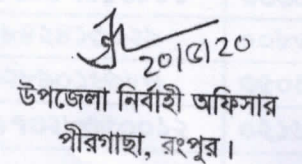 ২০|৫|২০
উপজেলা নির্বাহী অফিসার
পীরগাছা, রংপুর।